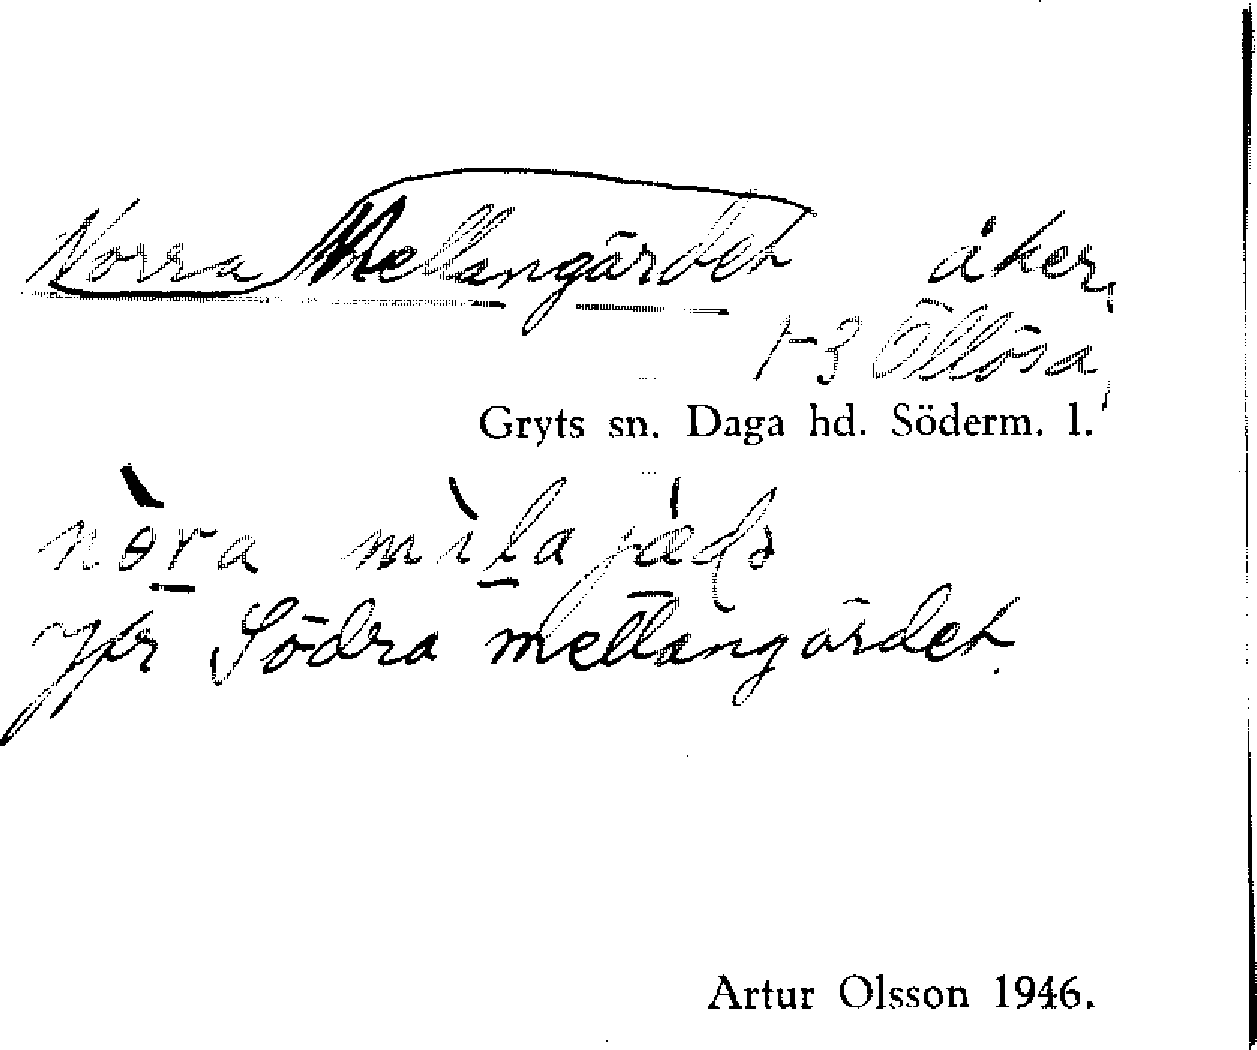 Norra Mellangärdet åker,
1-3 Öllösa,
Gryts sn. Daga hd. Söderm. l.
nòra
Jfr Södra mellangärdet.
Artur Olsson 1946.